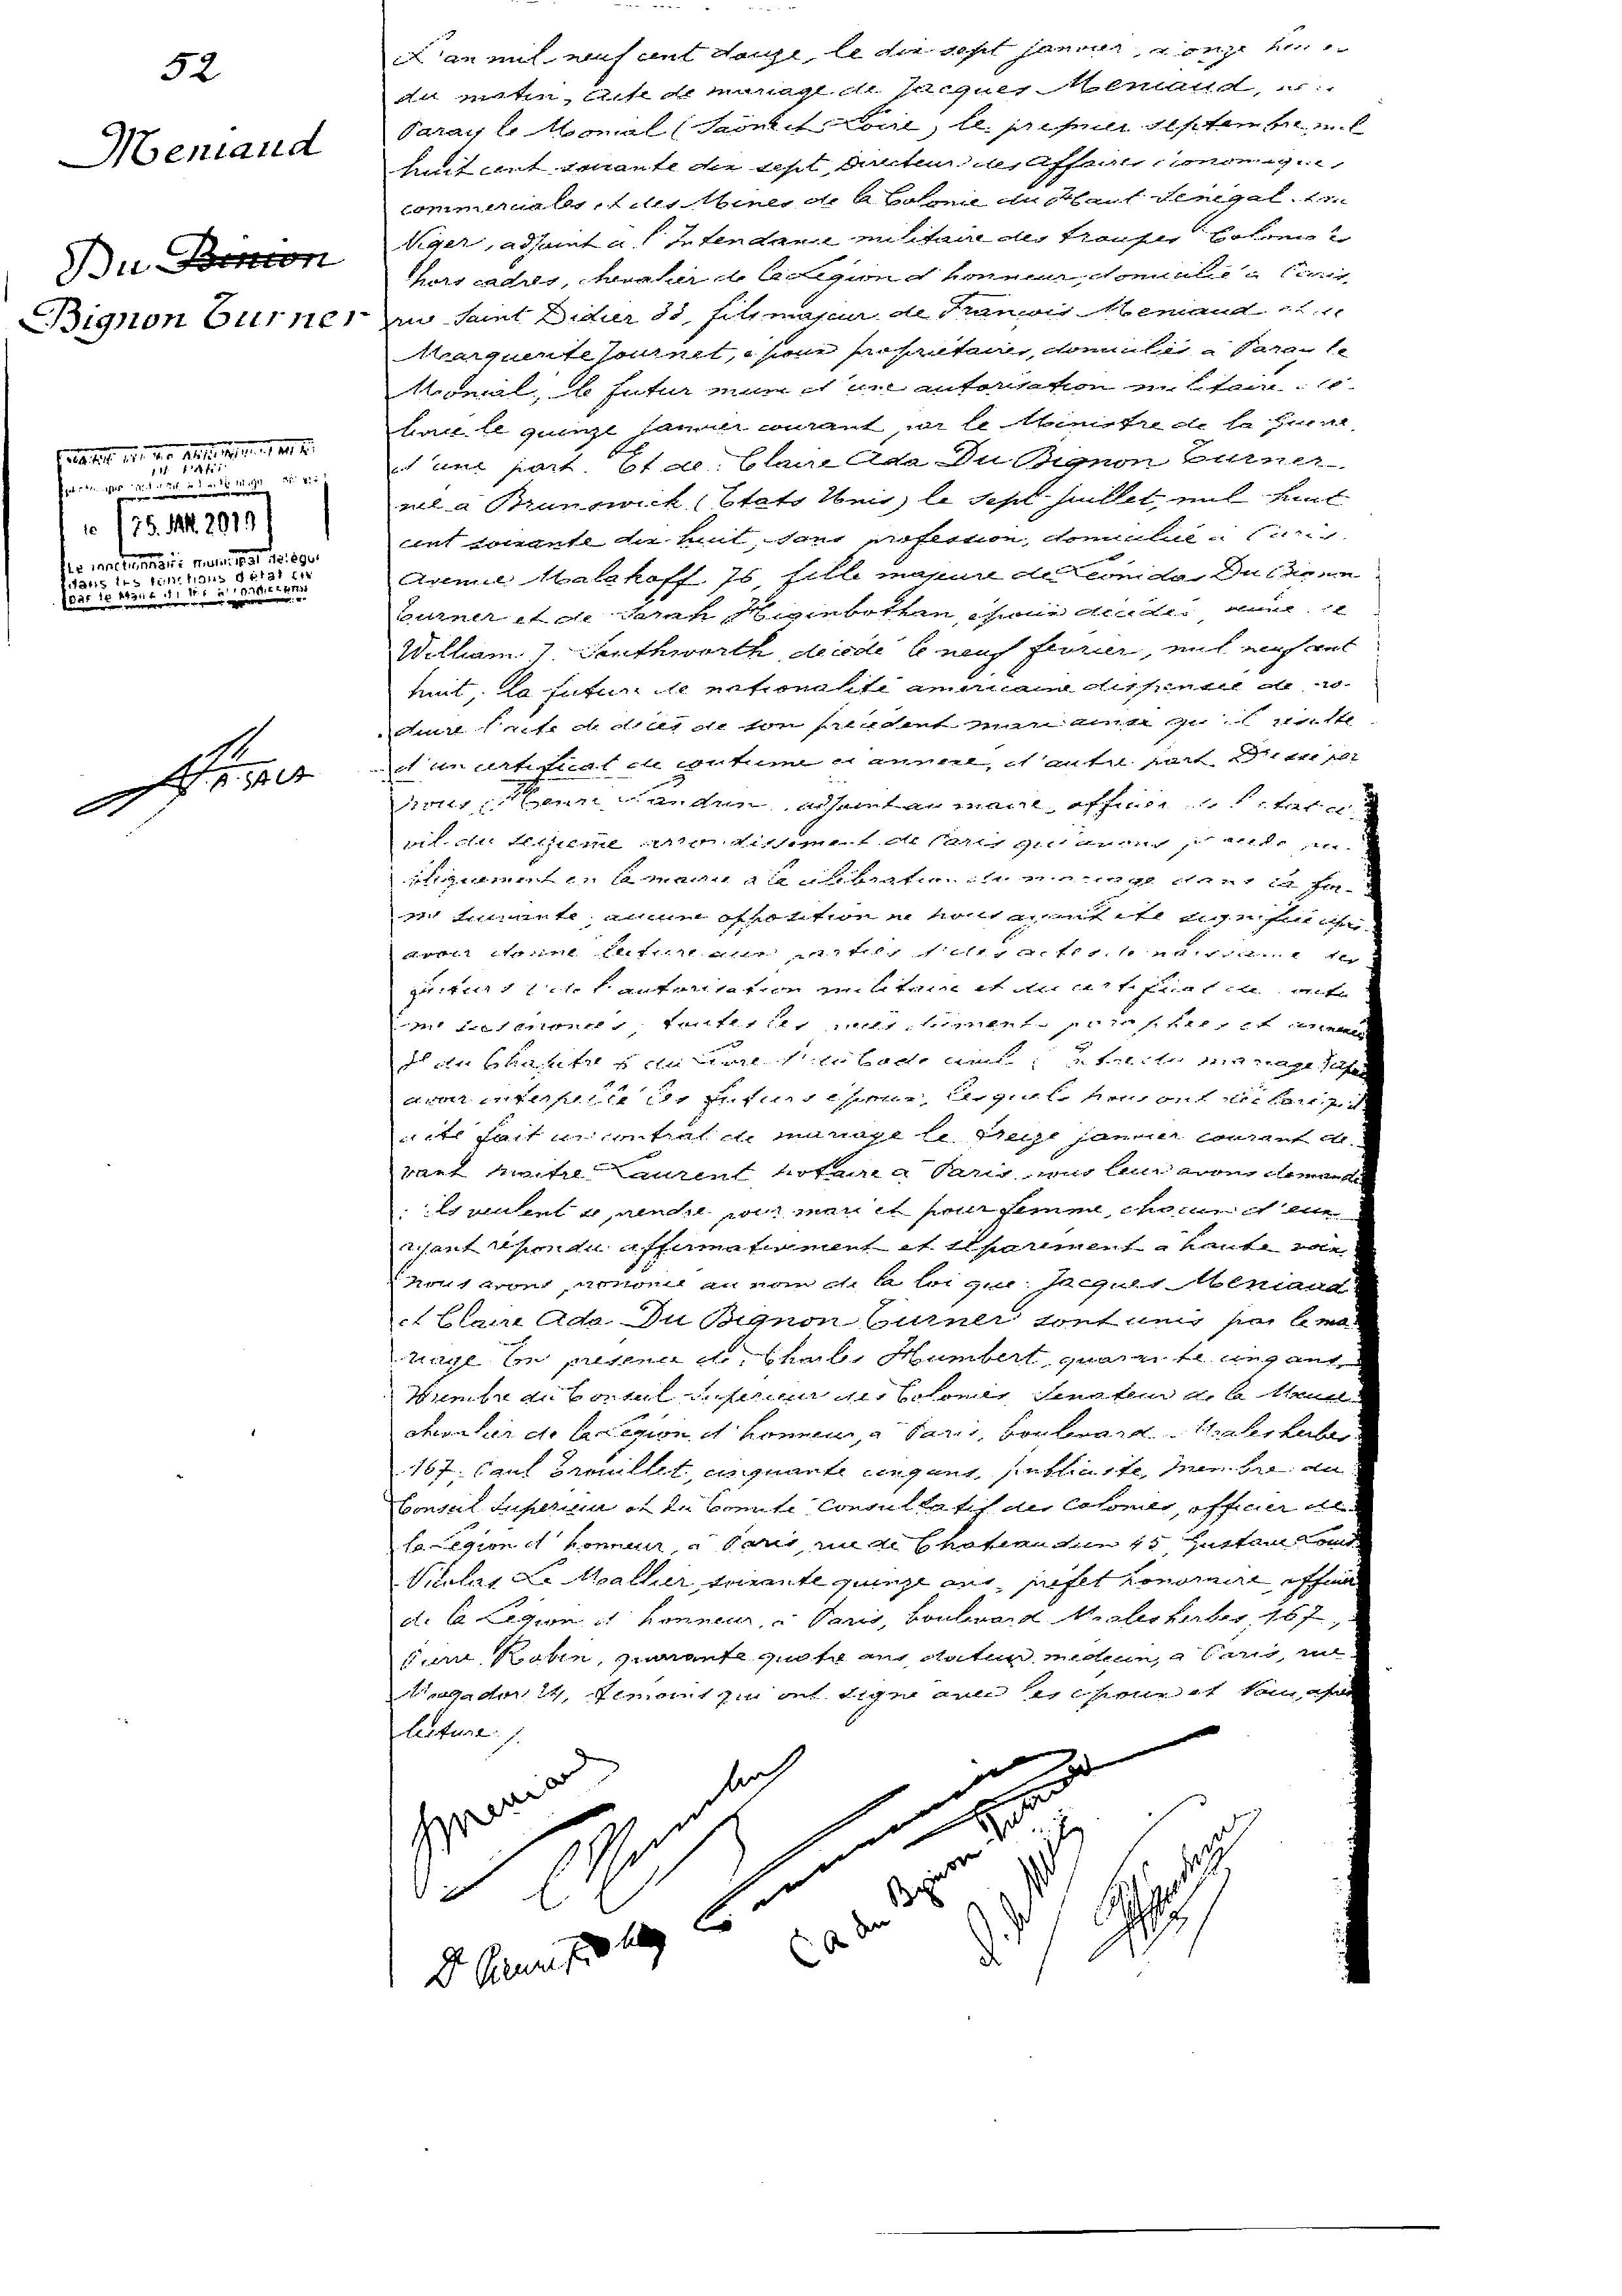 52
Meniaud
Du Binion
Bignon Turner
le 25. JAN. 2010
Le fonctionnaire municipal délégué
dans les fonctions d'état civil
par le Maire du 16e arrondissement
L'an mil neuf cent douze, le dix sept janvier, à onze heures
du matin, acte de mariage de Jacques Meniaud, né à
Paray le Monial (Saône et Loire), le premier septembre mil
huit cent soixante dix sept, Directeur des Affaires économiques,
commerciales et des Mines de la Colonie du Haut Sénégal et
Niger, adjoint à l'Intendance militaire des troupes Coloniales
hors cadres, chevalier de la Légion d'honneur, domicilié à Paris,
rue Saint Didier 33, fils majeur de François Meniaud et de
Marguerite Journet, époux propriétaires, domiciliés à Paray le
Monial, le futur muni d'une autorisation militaire dé-
livrée le quinze janvier courant par le Ministre de la Guerre,
d'une part. Et de: Claire Ada Du Bignon Turner
née à Brunswick (Etats Unis) le sept juillet, mil huit
cent soixante dix huit, sans profession, domiciliée à Paris,
Avenue Malakoff 76, fille majeure de Leonidas Du Bignon
Turner et de Sarah Higinbothan, époux décédés, veuve de
William J. Southworth, décédé le neuf février, mil neuf cent
huit, la future de nationalité américaine dispensée de pro-
duire l'acte de décès de son précédent mari ainsi qu'il résulte
d'un certificat de coutume ci annexé, d'autre part. Dressé par
nous, Henri adjoint au maire, officier de l'état ci-
vil du seizième arrondissement de Paris qui avons procédé pu-
bliquement en la mairie à la célébration du mariage dans la for-
me suivante; aucune opposition ne nous ayant été signifiée après
avoir donné lecture aux parties des actes de naissance des
futurs, de l'autorisation militaire et du certificat de coutu-
me susénoncés, toutes les pièces dûment paraphées et annexées
et du Chapitre 6 du livre du Code civil, titre du mariage, après
avoir interpellé les futurs époux, lesquels nous ont déclaré qu'il
a été fait un contrat de mariage le treize janvier courant de-
vant maître Laurent notaire à Paris, nous leur avons demandé
s'ils veulent se prendre pour mari et pour femme, chacun d'eux
ayant répondu affirmativement et séparément à haute voix,
nous avons prononcé au nom de la loi que: Jacques Meniaud
et Claire Ada Du Bignon Turner sont unis par le ma-
riage. En présence de: Charles Humbert, quarante cinq ans,
Membre du Conseil Supérieur des Colonies, Sénateur de la Meuse
chevalier de la Légion d'honneur, à Paris, boulevard Malesherbes
167, Paul cinquante cinq ans, publiciste, Membre du
Conseil Supérieur et du Comité Consultatif des Colonies, officier de
la Légion d'honneur, à Paris, rue de Chateaudun 45, Gustave Louis
Nicolas Le Mallier, soixante quinze ans, préfet honoraire, officier
de la Légion d'honneur, à Paris, boulevard Malesherbes, 167,
Pierre Robin, quarante quatre ans, docteur médecin, à Paris, rue
Mogador 24, témoins qui ont signé avec les époux et Nous, après
lecture.
JMeniaud
C A du Bignon